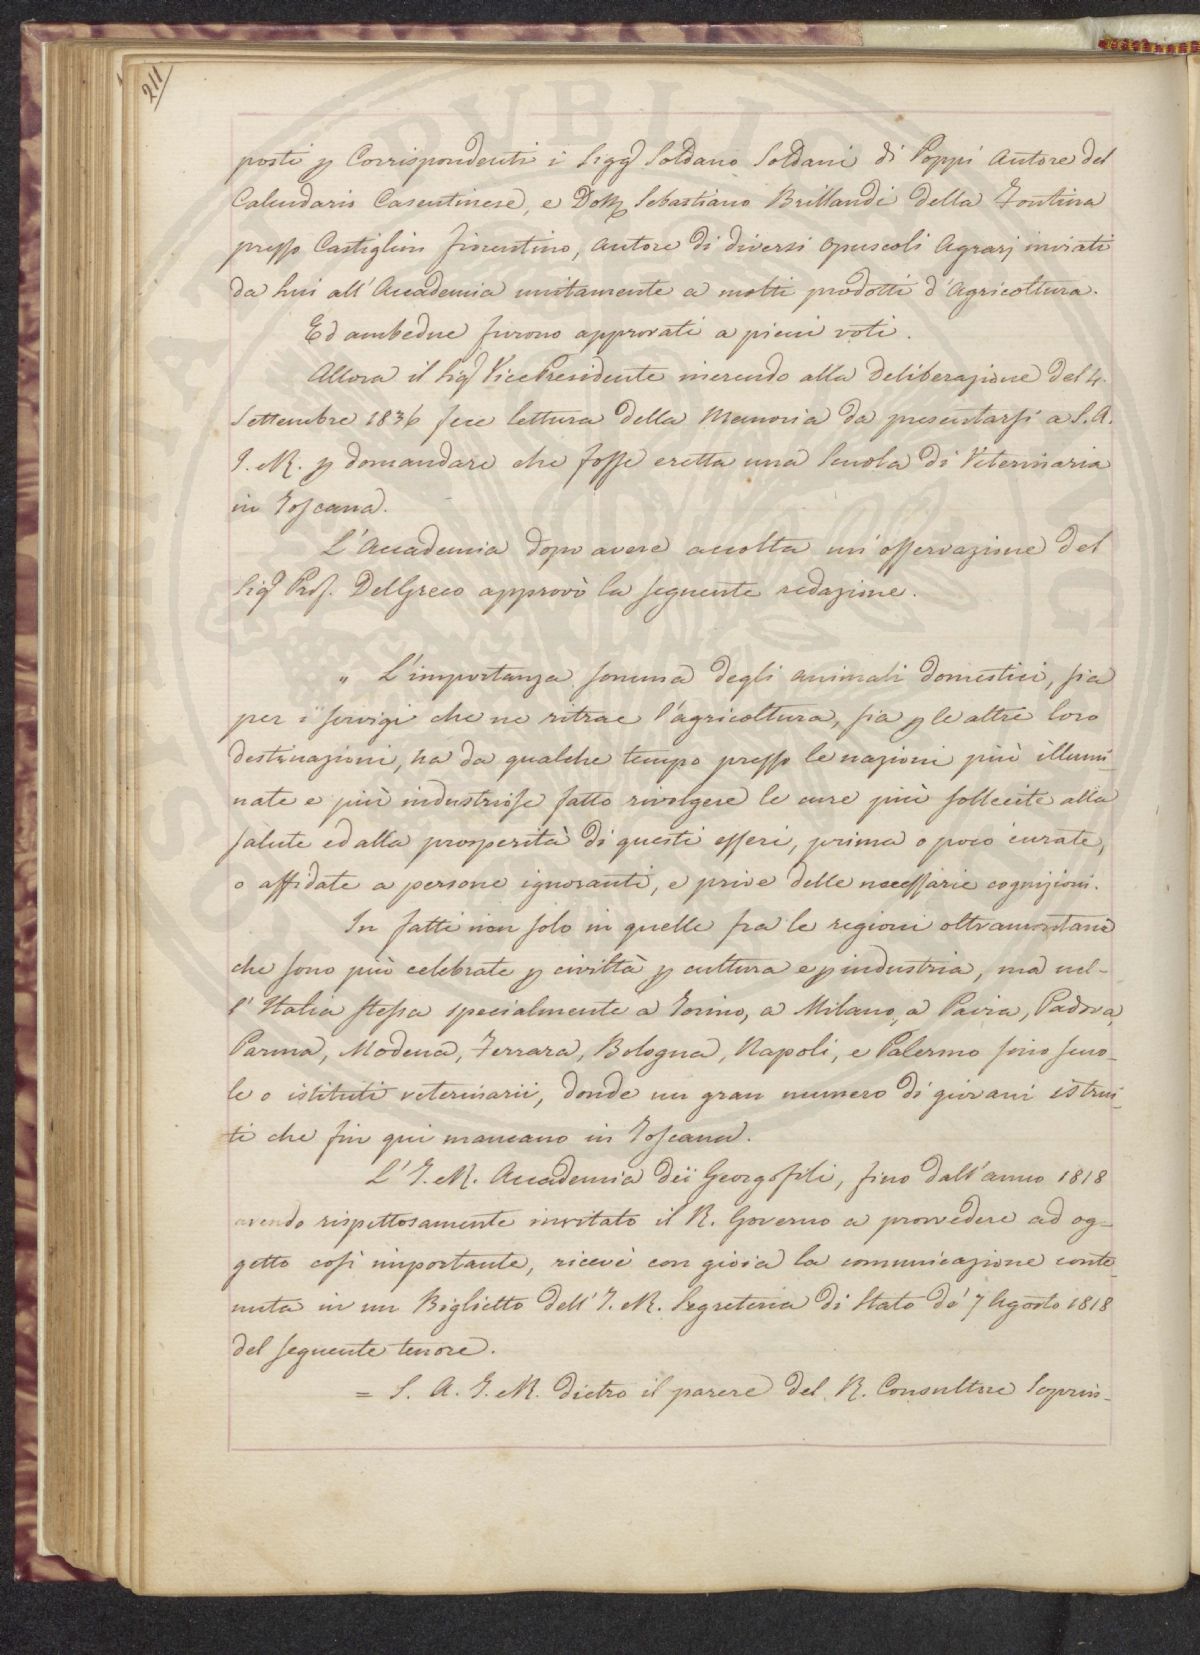 211
posti p Corrispondenti i Sigg Soldano Soldani di Poppi Autore del
Calendario Casentinese, e Dott Sebastiano Brillandi della Fontina
presso Castiglion Fiorentino, autore di diversi opuscoli Agrarj inviati
da lui all'Accademia unitamente a molti prodotti d'Agricoltura.
Ed ambedue furono approvati a pieni voti.
Allora il Sig VicePresidente inerendo alla deliberazione del 4.
Settembre 1836 fece lettura della Memoria da presentarsi a S. A.
I. e R. p domandare che fosse eretta una Scuola di Veterinaria
in Toscana.
L'Accademia dopo avere accolta un'osservazione del
Sig Prof. DelGreco approvò la seguente redazione.
" L'importanza somma degli animali domestici, sia
per i servigi che ne ritrae l'agricoltura, sia p le altre loro
destinazioni, ha da qualche tempo presso le nazioni più illumi-
nate e più industriose fatto rivolgere le cure più sollecite alla
salute ed alla prosperità di questi esseri, prima o poco curate,
o affidate a persone ignoranti, e prive delle necessarie cognizioni.
In fatti non solo in quelle fra le regioni oltramontane
che sono più celebrate p civiltà p cultura e p industria, ma nel-
l'Italia stessa specialmente a Torino, a Milano, a Pavia, Padova,
Parma, Modena, Ferrara, Bologna, Napoli, e Palermo sono scuo-
le o istituti veterinarii, donde un gran numero di giovani istrui-
ti che fin qui mancano in Toscana.
L'I. e R. Accademia dei Georgofili, fino dall'anno 1818
avendo rispettosamente invitato il R. Governo a provvedere ad og-
getto così importante, ricevè con gioia la comunicazione conte-
nuta in un Biglietto dell'I. e R. Segreteria di Stato de' 7 Agosto 1818
del seguente tenore.
= S. A. I. e R. dietro il parere del R. Consultore Soprin-